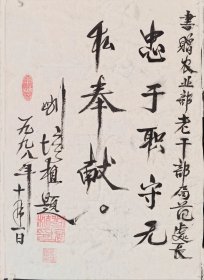 书赠农业部老干部局范处长
忠于职守无
私奉献。
刘培植题
一九九八年十月一日